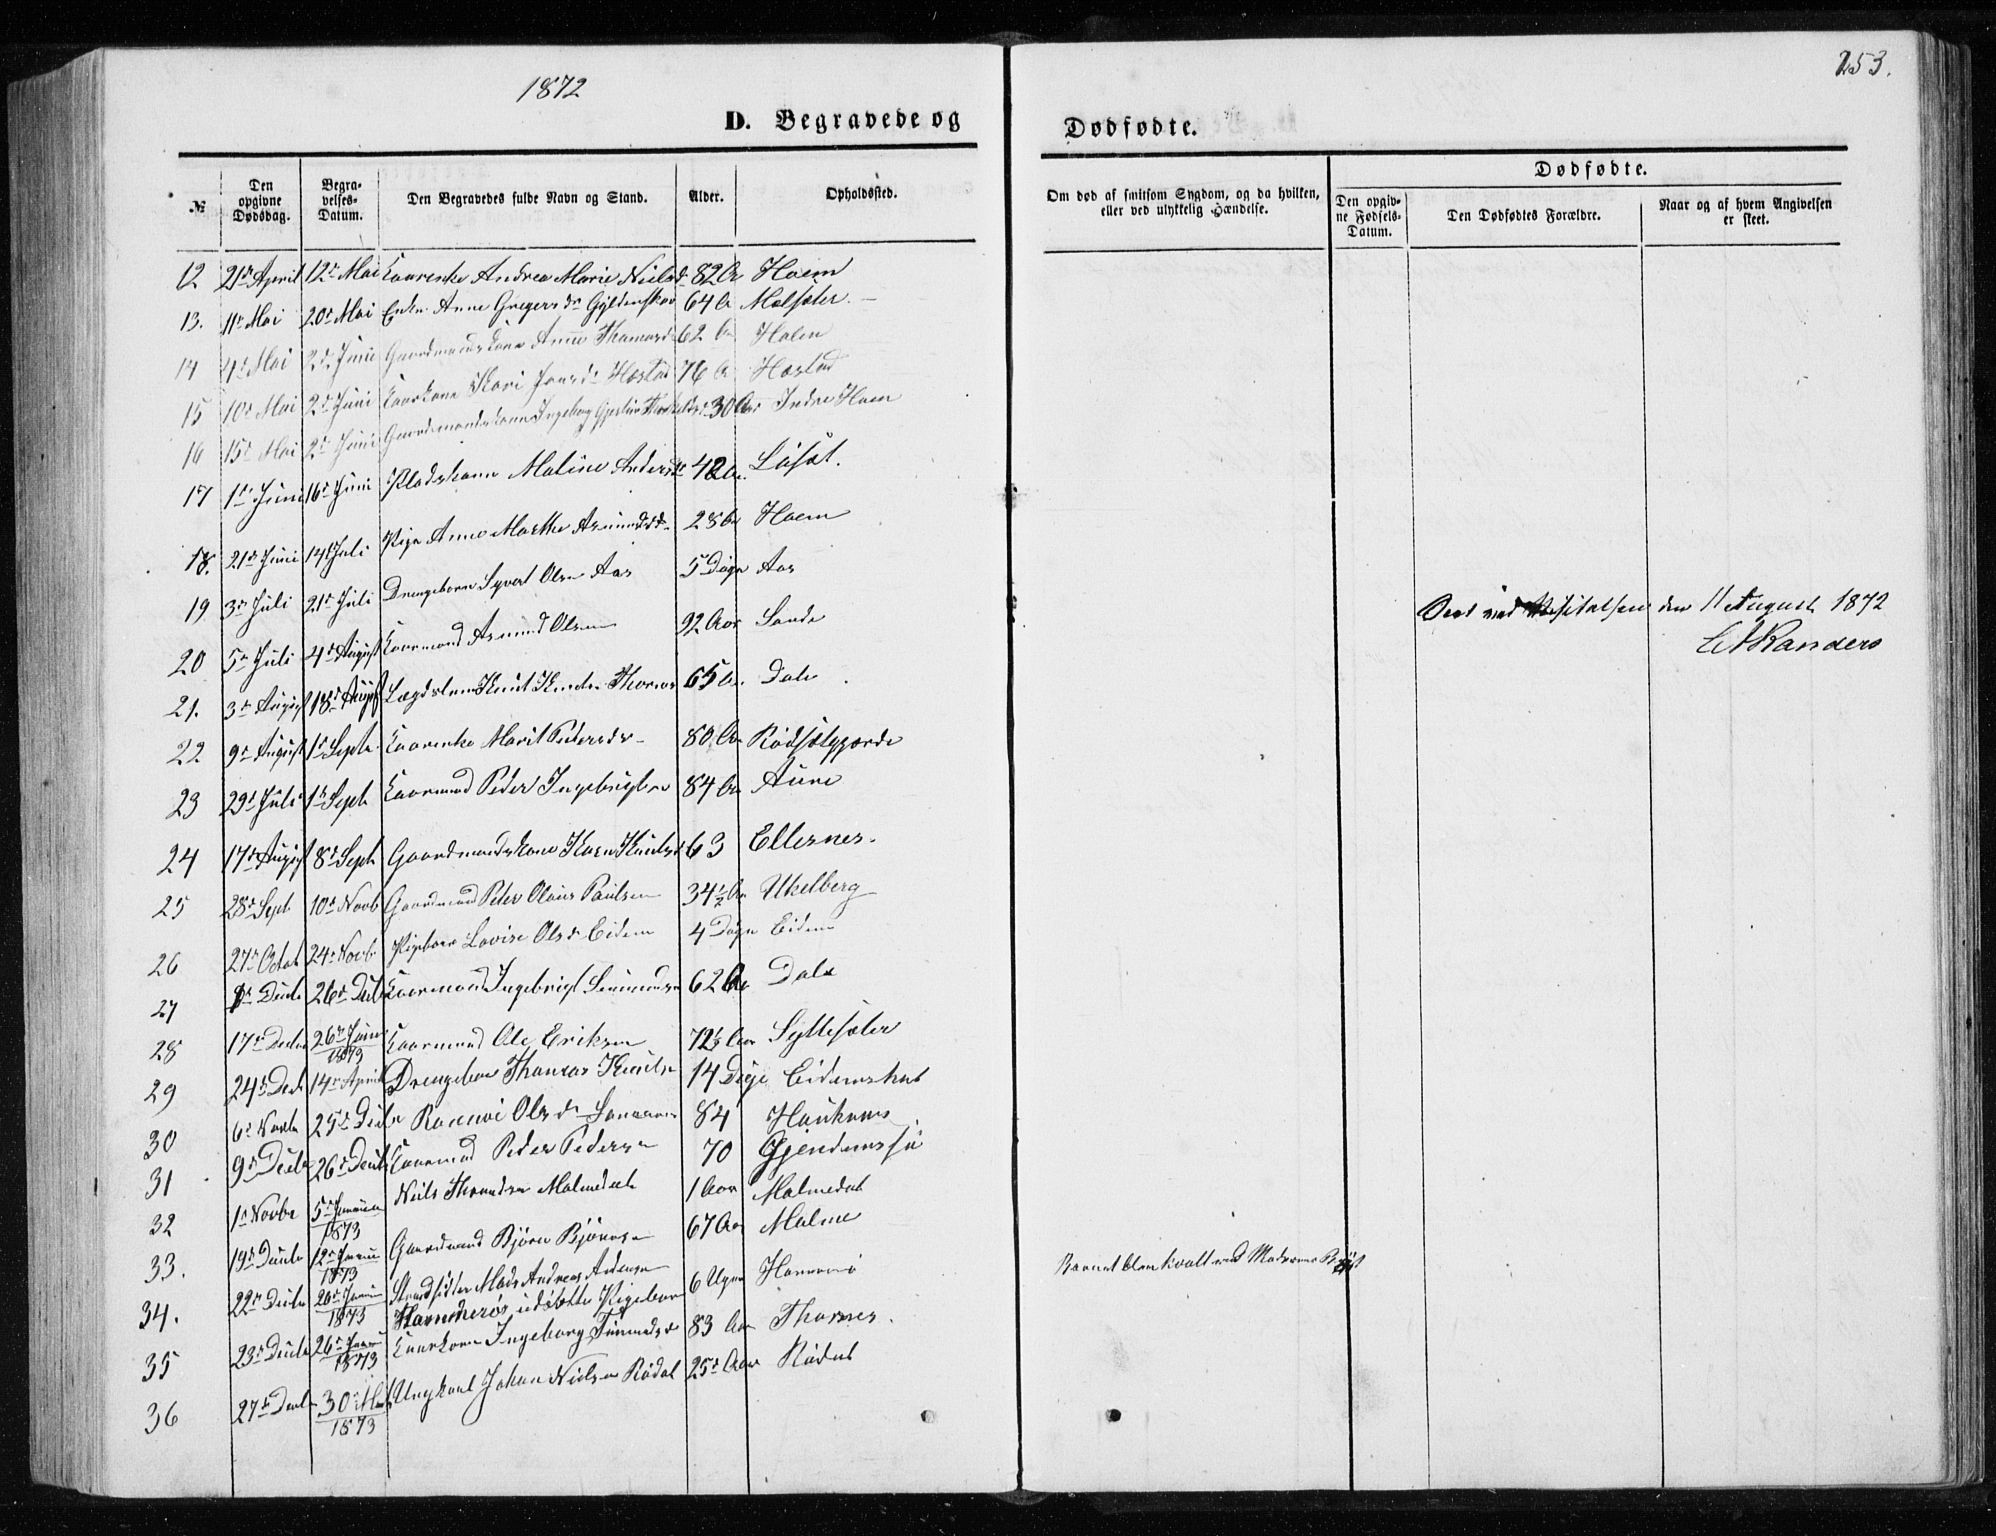 1872
253.
D. Begravede og
Dødfødte.
№
Den opgivne Dødsdag.
Begravelses-Datum.
Den Begravedes fulde Navn og Stand.
Alder.
Opholdssted.
Om død af smitsom Sygdom, og da hvilken, eller ved ulykkelig Hændelse.
Dødfødte.
Den opgivne Fødsels-Datum.
Den Dødfødtes Forældre.
Naar og af hvem Angivelsen er skeet.
12 21de April 12te Mai Kaarenke Andrea Marie Nielsd 82 Aar Hoem
13. 11te Mai 20de Mai Enke Anne Gregersdr Gyldenskov 64 Malsæter
14 4de Mai 2den Juni Gaardmandskone Anne Thomasd 62 Holen
15 10de Mai 2den Juni Kaarkone Kari Jonsdr Hostad 76 Hostad
16 15de Mai 2den Juni Gaardmandskone Ingeborg 30 Aar Indre Hoem
17 1ste Juni 16de Juni Pladskone Maline Andersdr 42 Aar
18. 21de Juni 14de Juli Pige Anne Marthe Asmundsdr 28 Hoem
19 3de Juli 21de Juli Drengebarn Syvert Olsen Aas 5 Døgn Aas
20 5te Juli 4de August Kaarmand Asmund Olsen 92 Aar Sande
Seet ved Visitatsen den 11 August 1872
Randers
21. 3de August 18de August Lægdslem Knud Knudsen Thornes 65 Dale
22 9de August 1ste Septe Kaarenke Marit Pedersdr 80 Aar Rødsætgjærde
23 29de Juli 1ste Sept Kaarmand Peder Ingebrigtsen 84 Aar Aure
24 17de August 8de Sept Gaardmandskone Karen Knudsd 63 Ellesnes.
25 28de Sept 10de Novb Gaardmand Peter Olaus Paulsen 34½ Aar Ukelberg
26 27de Octob 24de Novb Pigebarn Lovise Olsdr Eidem 4 Døgn Eidem
27 Decbr 26de Decbr Kaarmand Ingebrigt 62 Aar Dale
28 17de Decbr 26de Januar 1873 Kaarmand Ole Eriksen 72⅓ Aar Syltesæter
29 24de Decb 14de April Drengebarn Thomas Knudsen 14 Døgn
30 6te Novbr 25de Decbr Rannvei Olsdr 84 Haukaas
31 9de Decbr 26de Decbr Kaarmand Peder Pedersen 70 Gjendemssjø
32 1ste Novbr 5te Januar 1873 Niels Thomassen Malmedal 1 Aar Malmedal
33. 19de Decbr 12te Januar 1873 Gaardmand Bjørn Bjørnsen 67 Aar Malme
34. 22de Decbr 20de Januar 1873 Strandsidder Mads Andreas Andersen Havnerøs udøbte Pigebarn 6 Uger
Barnet blev kvalt ved Moderens Bryst
35 23de Decbr 26de Januar 1873 Kaarkone Ingeborg 83 Aar Thornes.
36 27de Decbr 30 Marts 1873 Ungkarl Johan Nielsen Rødal 25 Aar Rødal